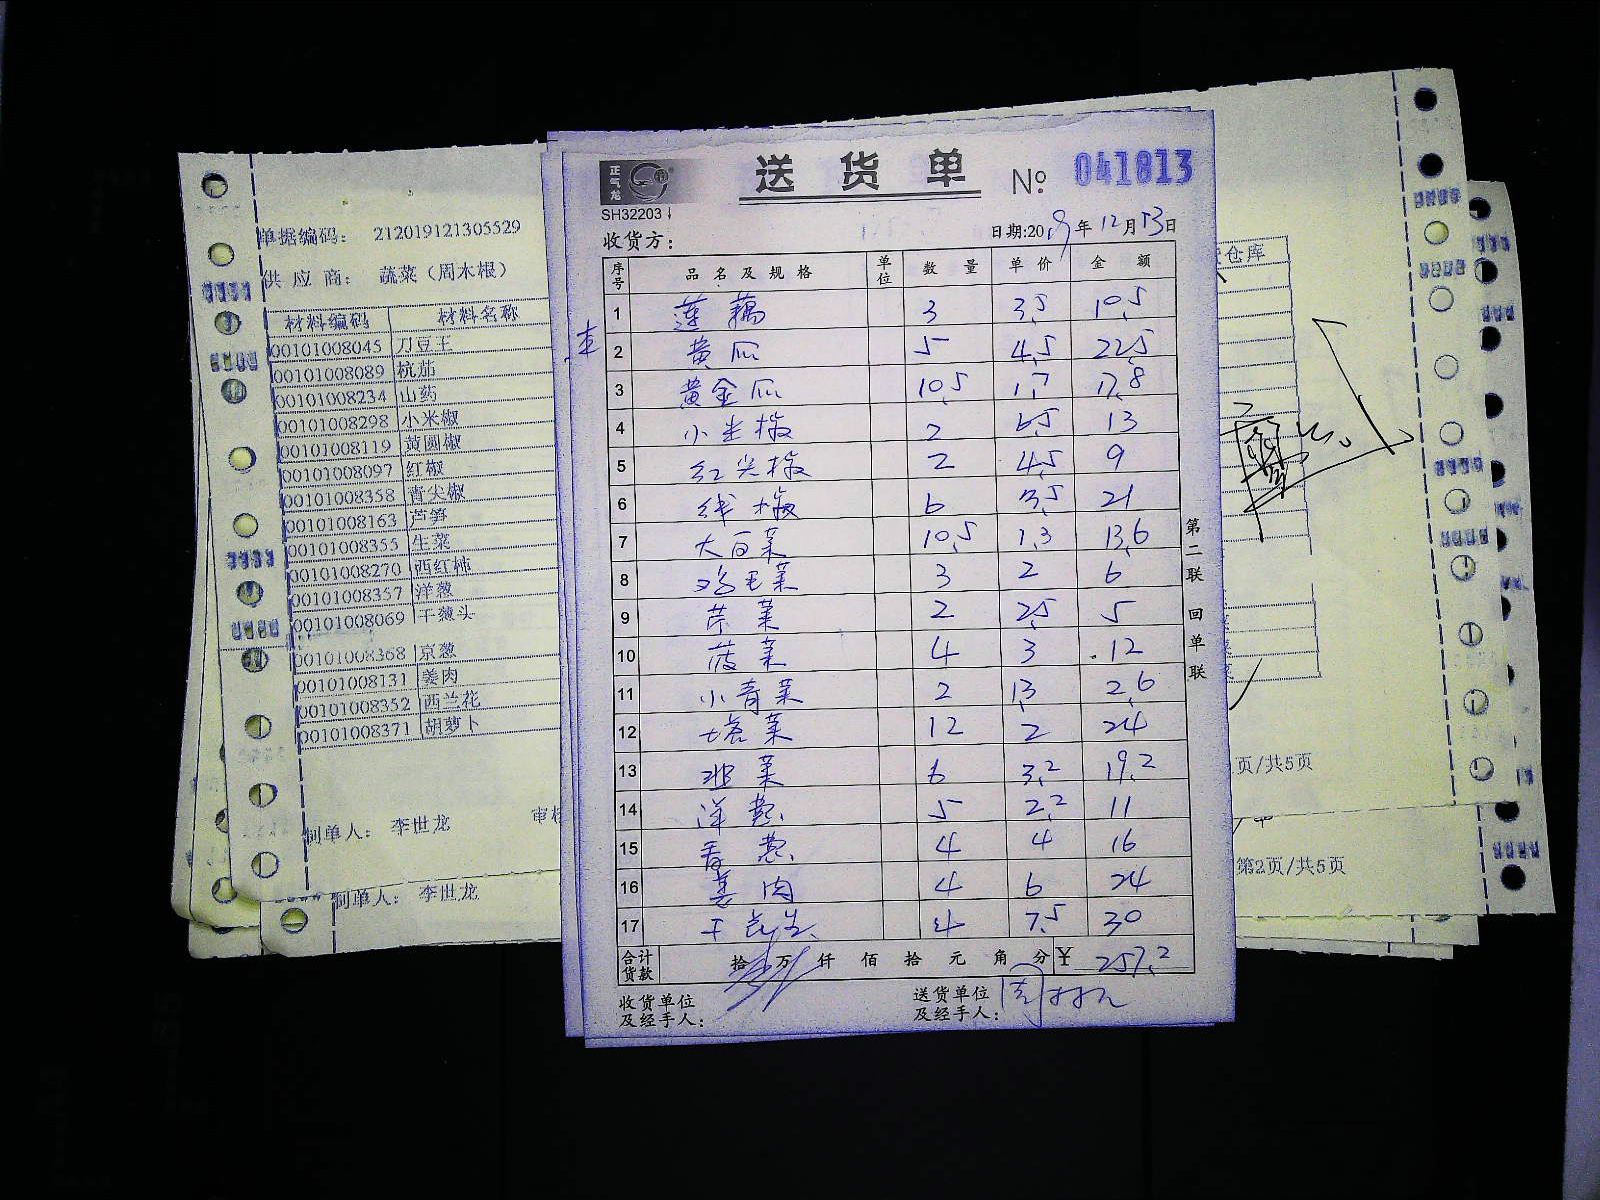 正气龙
送货单 № 041813
SH32203
收货方： 日期:2019年12月13日
序号 品名及规格 单位 数量 单价 金额
1 莲藕 3 3.5 10.5
2 黄瓜 5 4.5 22.5
3 黄金瓜 10.5 1.7 17.8
4 小米椒 2 6.5 13
5 红尖椒 2 4.5 9
6 线椒 6 3.5 21
7 大白菜 10.5 1.3 13.6
8 鸡毛菜 3 2 6
9 芹菜 2 2.5 5
10 菠菜 4 3 12
11 小青菜 2 1.3 2.6
12 塔菜 12 2 24
13 菜 6 3.2 19.2
14 洋葱 5 2.2 11
15 香葱 4 4 16
16 姜肉 4 6 24
17 干 4 7.5 30
合计货款 拾万仟佰拾元角分 ¥ 257.2
收货单位及经手人： 送货单位及经手人：
第二联 回单联
单据编码： 212019121305529
供应商： 蔬菜（周木根）
材料编码 材料名称
00101008045 刀豆王
00101008089 杭茄
00101008234 山药
00101008298 小米椒
00101008119 黄圆椒
00101008097 红椒
00101008358 青尖椒
00101008163 芦笋
00101008355 生菜
00101008270 西红柿
00101008357 洋葱
00101008069 干葱头
00101008368 京葱
00101008131 姜肉
00101008352 西兰花
00101008371 胡萝卜
制单人： 李世龙 审核
制单人： 李世龙
仓库
页/共5页
第2页/共5页